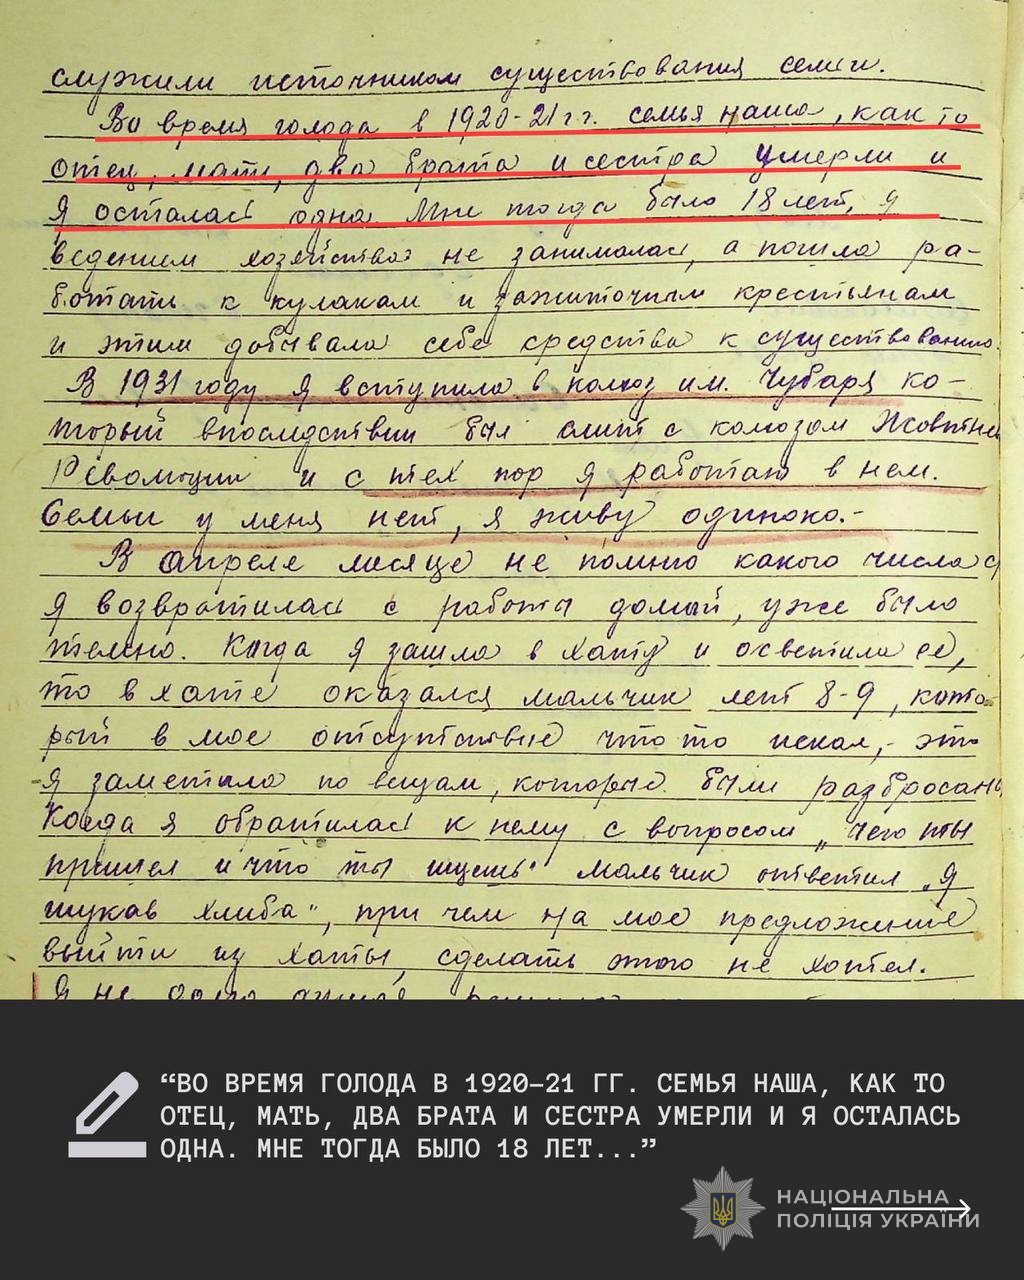 служили источником существования семьи.
Во время голода в 1920-21 г.г. семья наша, как то
отец, мать, два брата и сестра умерли и
я осталась одна. Мне тогда было 18 лет, я
ведением хозяйства не занималась, а пошла ра-
ботать к кулакам и зажиточным крестьянам
и этим добывала себе средства к существованию.
В 1931 году я вступила в колхоз им. Чубаря ко-
торый впоследствии был слит с колхозом Жовтнев
Революции и с тех пор я работаю в нем.
Семьи у меня нет, я живу одиноко.-
В апреле месяце не помню какого числа
я возвратилась с работы домой, уже было
темно. Когда я зашла в хату и осветила ее,
то в хате оказался мальчик лет 8-9, кото-
рый в мое отсутствие что то искал, это
я заметила по вещам, которые были разбросаны
Когда я обратилась к нему с вопросом „чего ты
пришел и что ты ищешь" мальчик ответил „я
шукав хлиба", при чем на мое предложение
выйти из хаты, сделать этого не хотел.
Я не долго
“ВО ВРЕМЯ ГОЛОДА В 1920–21 ГГ. СЕМЬЯ НАША, КАК ТО
ОТЕЦ, МАТЬ, ДВА БРАТА И СЕСТРА УМЕРЛИ И Я ОСТАЛАСЬ
ОДНА. МНЕ ТОГДА БЫЛО 18 ЛЕТ...”
НАЦІОНАЛЬНА
ПОЛІЦІЯ УКРАЇНИ